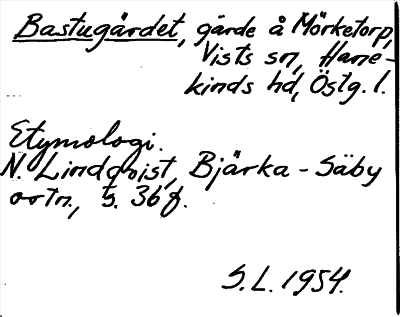 Bastugärdet, gärde å Mörketorp,
Vists sn, Hane-
kinds hd, Östg. l.
Etymologi.
N. Lindqvist, Bjärka-Säby
ortn., s. 36 f.
S.L. 1954.